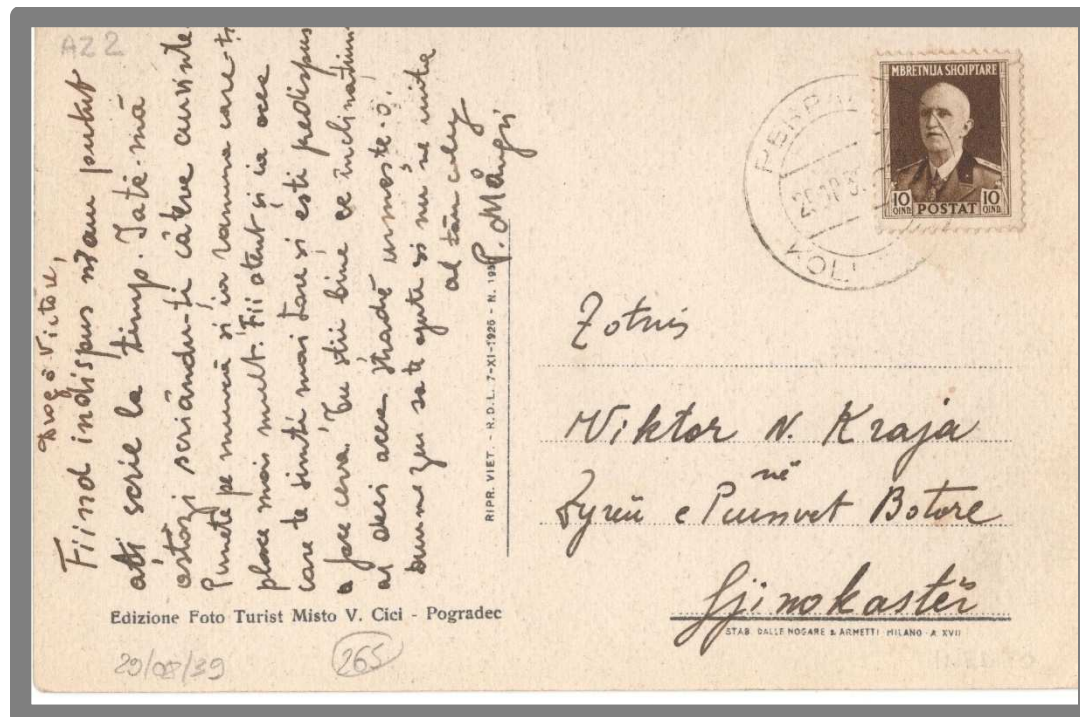 AZ 2
Dragă Victore,
Fiind indispus n'am putut
ați scrie la timp. Iată-mă
astăzi scriându-ți câteva cuvinte
Punete pe muncă și ia ramura care-ți
place mai mult. Fii atent și ia acea
care te simti mai tare și esti predispus
a face ceva. Tu știi bine ce înclinațiuni
ai deci acea stradă urmeste-o.
Dumnezeu sa te ajute si nu ne uita
al tău coleg
P. Mângri
RIPR. VIET. - R.D.L. 7-XI-1926 - N. 193
Edizione Foto Turist Misto V. Cici - Pogradec
29/08/39
265
MBRETNIJA SHQIPTARE
10 QIND. POSTAT 10 QIND.
Zotnis
Viktor N. Kraja
në
Zyrën e Punvet Botore
Gjinokastër
STAB. DALLE NOGARE & ARMETTI - MILANO - A. XVII